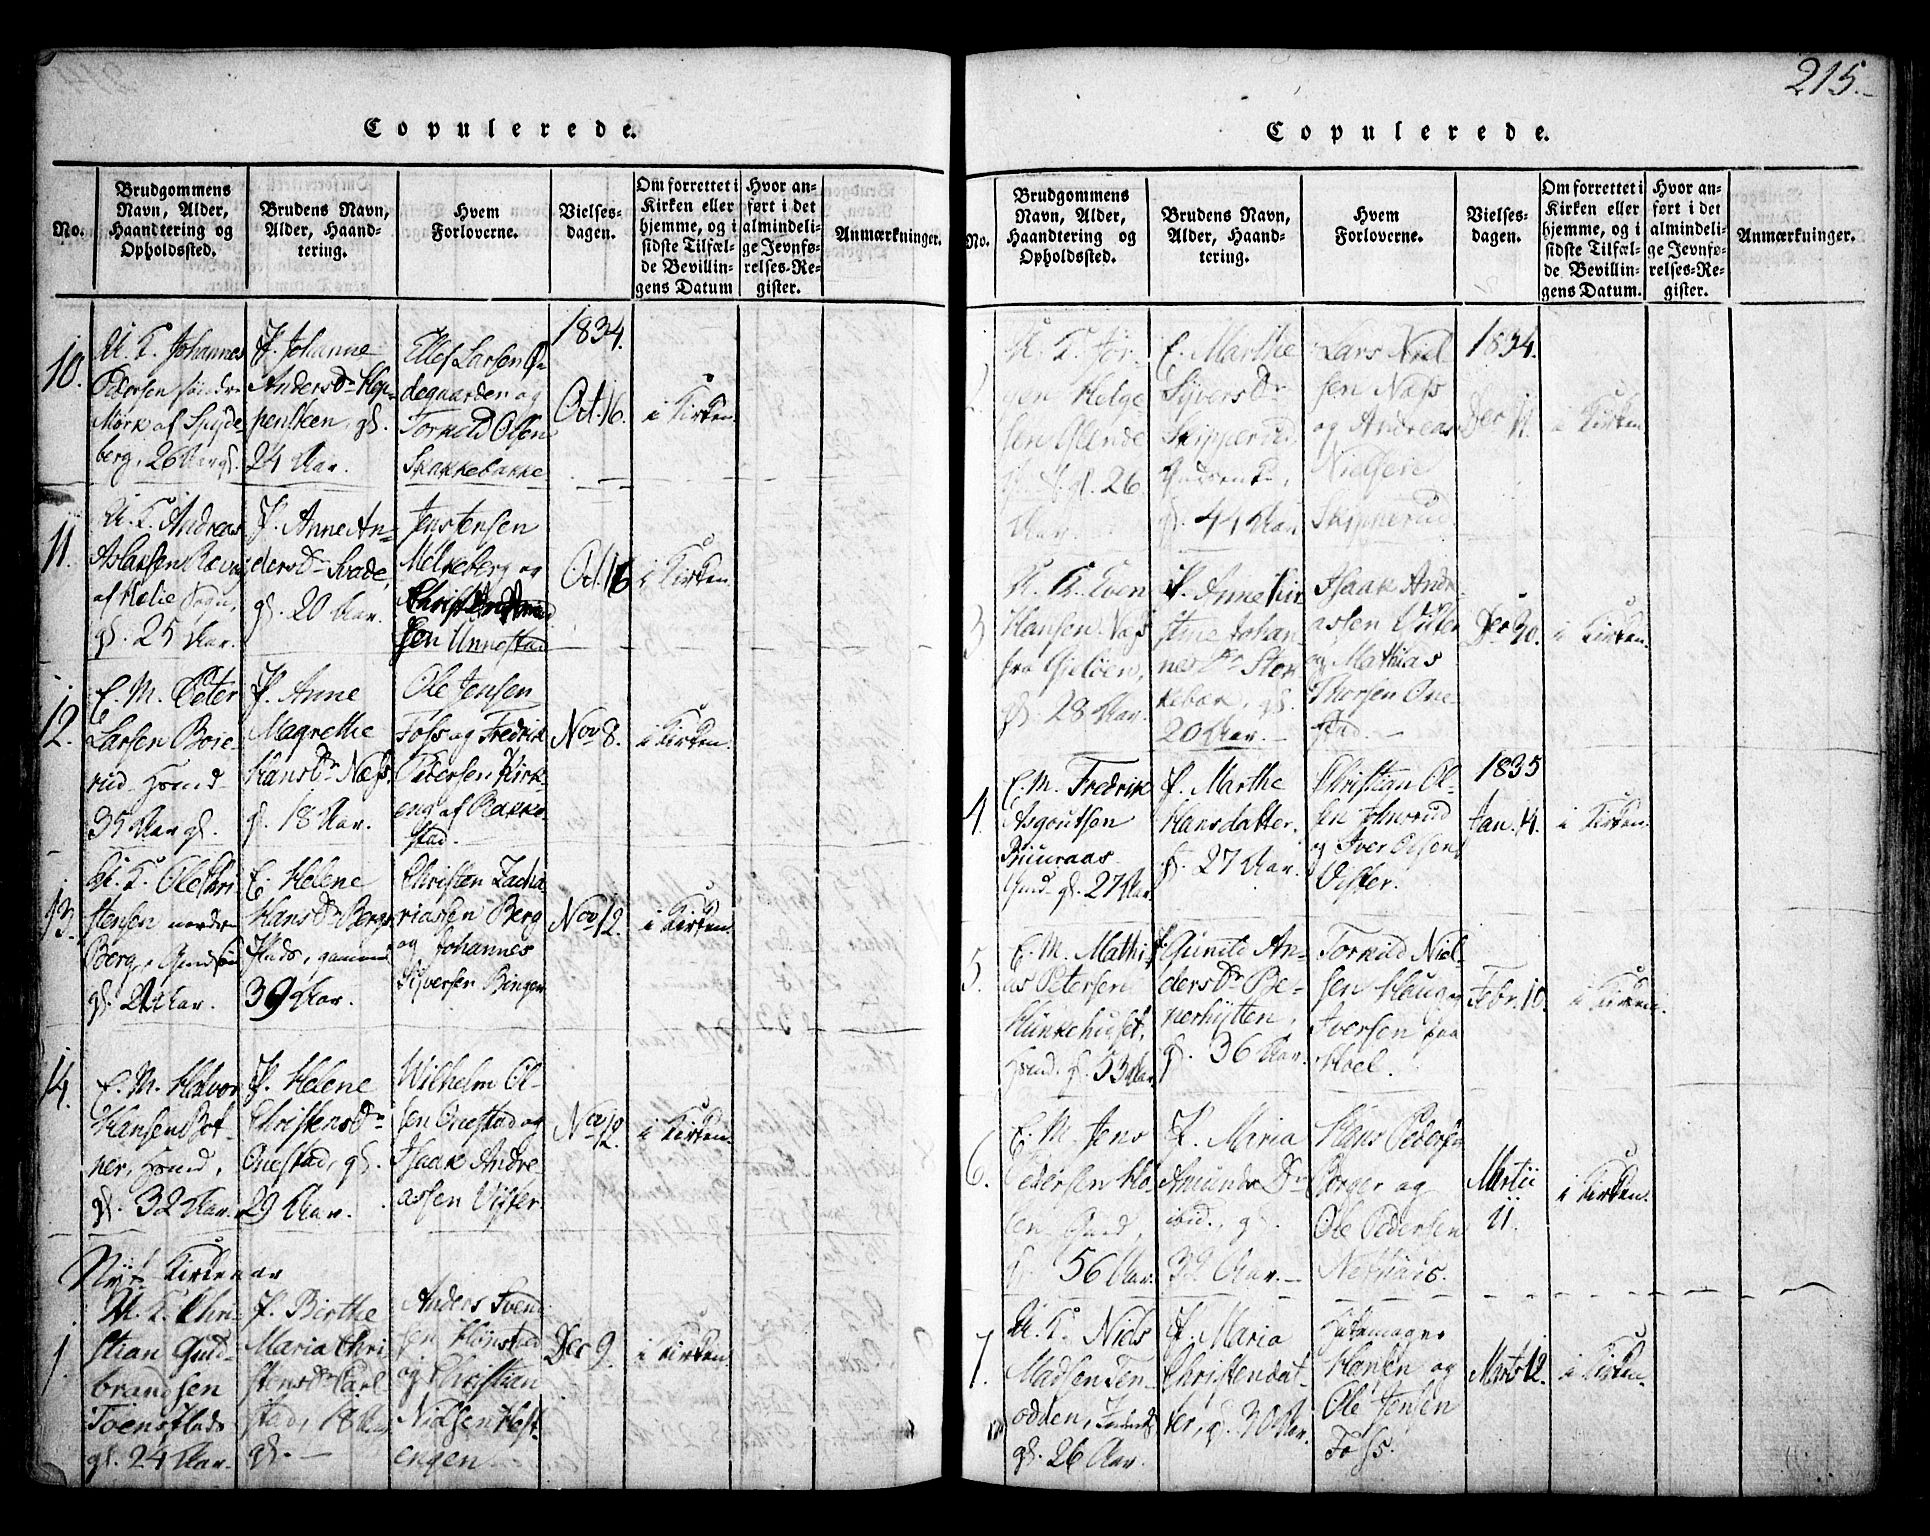 215.
Copulerede.
No.
Brudgommens
Navn, Alder,
Haandtering og
Opholdssted.
Brudens Navn,
Alder, Haand-
tering.
Hvem
Forloverne.
Vielses-
dagen.
Om forrettet i
Kirken eller
hjemme, og i
sidste Tilfæl-
de Bevillin-
gens Datum
Hvor an-
ført i det
almindeli-
ge Jevnfø-
relses-Re-
gister.
Anmærkninger.
10.
U. K. Johannes
Pedersen søndre
Mørk af Spyde-
berg, 26 Aar gl.
P. Johanne
Anders Dr.
gl.
24 Aar.
Ellef Larsen Ø-
degaarden og
Torkild Olsen
Skakkebakke
1834.
Oct. 16.
i Kirken.
11.
U. K. Andreas
Aslaksen
af Sogn,
gl. 25 Aar.
P. Anne An-
ders Dr. Svade,
gl. 20 Aar.
Jens Jensen
Melleberg og
sen Unnestad
Oct. 16
i Kirken.
12.
E. M. Peter
Larsen Bore-
rud
35 Aar gl.
P. Anne
Magrethe
Hans Dr. Næss
gl. 18 Aar.
Ole Jensen
Foss og Fredrik
Pedersen Kirk-
eng af Rakke-
stad.
Nov 8.
i Kirken.
13.
U. K. Ole Chri-
stensen nordre
Berg,
gl. Aar.
E. Helene
Hans Dr. Bergs
Plads,
39 Aar.
Christen Zacha-
riassen Berg
og Johannes
Syversen Bingen
Nov 12.
i Kirken.
14.
E. M. Halvor
Hansen Bot-
ner,
gl. 32 Aar.
P. Helene
Christens Dr.
Onestad, gl.
29 Aar.
Wilhelm Ol-
sen Onestad og
Isaak Andre-
assen Vister.
Nov 12.
i Kirken.
Nyt Kirkeaar
1.
U. K. Chri-
stian Gud-
brandsen
gl. 24 Aar.
P. Birthe
Maria Chri
stens Dr. Carl
stad, 18 Aar
gl. —
Anders Svend
sen
og Christian
Nielsen Hest-
engen
Dec 9.
i Kirken.
Copulerede.
No.
Brudgommens
Navn, Alder,
Haandtering og
Opholdssted.
Brudens Navn,
Alder, Haand-
tering.
Hvem
Forloverne.
Vielses-
dagen.
Om forrettet i
Kirken eller
hjemme, og i
sidste Tilfæl-
de Bevillin-
gens Datum.
Hvor an-
ført i det
almindeli-
ge Jevnfø-
relses-Re-
gister.
Anmærkninger.
2.
U. K. Jør-
gen Helge
sen
gl. 26
Aar
E. Marthe
Syvers Dr
Skipperud
gl. 44 Aar.
Lars Niel
sen Næss
og Andreas
Nielsen
Skipperud.
1834.
Dec 11.
i Kirken
3
U. K. Even
Hansen Næs
fra Gjeløen,
gl. 28 Aar.
P. Anne Kir
stine Johan
nes Dr. Stor
gl.
20 Aar. —
Isaak Andre
assen Vister
og Mathias
Thorsen One
stad. —
Dec 30.
i Kirken.
4.
E. M. Fredrik
Asgoutsen
gl. 27 Aar.
P. Marthe
Hansdatter.
gl. 27 Aar.
Christian Ol-
sen
og Iver Olsen
Vister.
1835
Jan. 14.
i Kirken.
5.
E. M. Mathi
as Petersen
gl. 53 Aar.
P. Gunild An-
ders Dr. Be-
verhytten,
gl. 36 Aar.
Torkild Niel-
sen Haug
Iversen fra
Hoel.
Febr. 10.
i Kirken.
6.
E. M. Jens
Pedersen Ho
len
gl. 56 Aar.
P. Maria
Amunds Dr
ibid., gl.
32 Aar. —
Hans Pedersen
Borger og
Ole Pedersen
Marti
11.
i Kirken.
7.
U. K. Niels
Madsen Ten-
odden,
gl. 26 Aar.
P. Maria
Christensdat-
ter, gl. 30 Aar.
Hansen og
Ole Jensen
Foss.
Marts 12.
i Kirken.